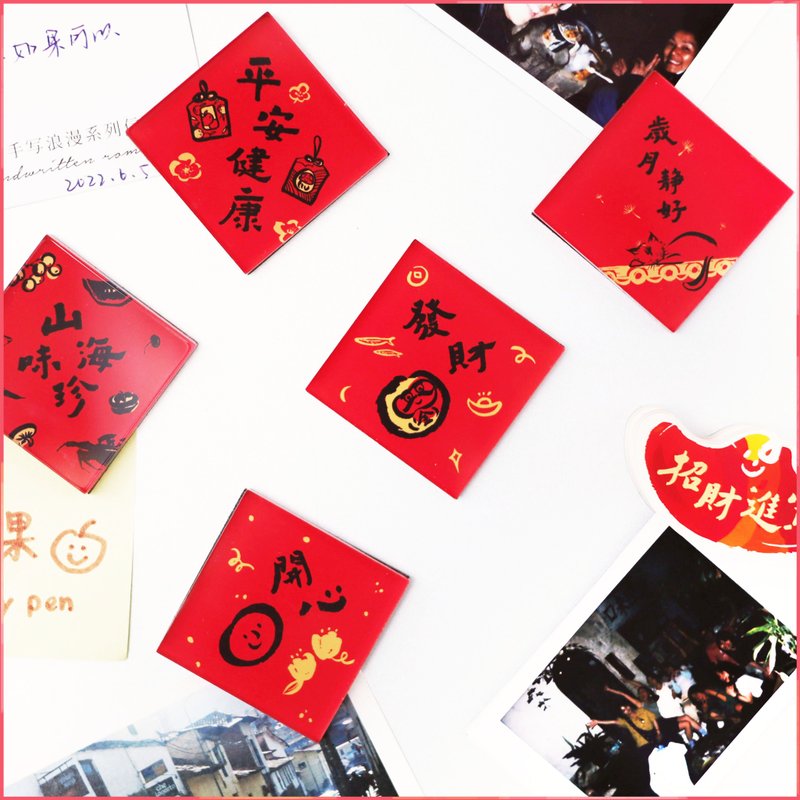 如果可以
手写浪漫系列
handwritten rom
2022.6.5
平安健康
歲月静好
山海
味珍
發財
招財進
果
y pen
開心